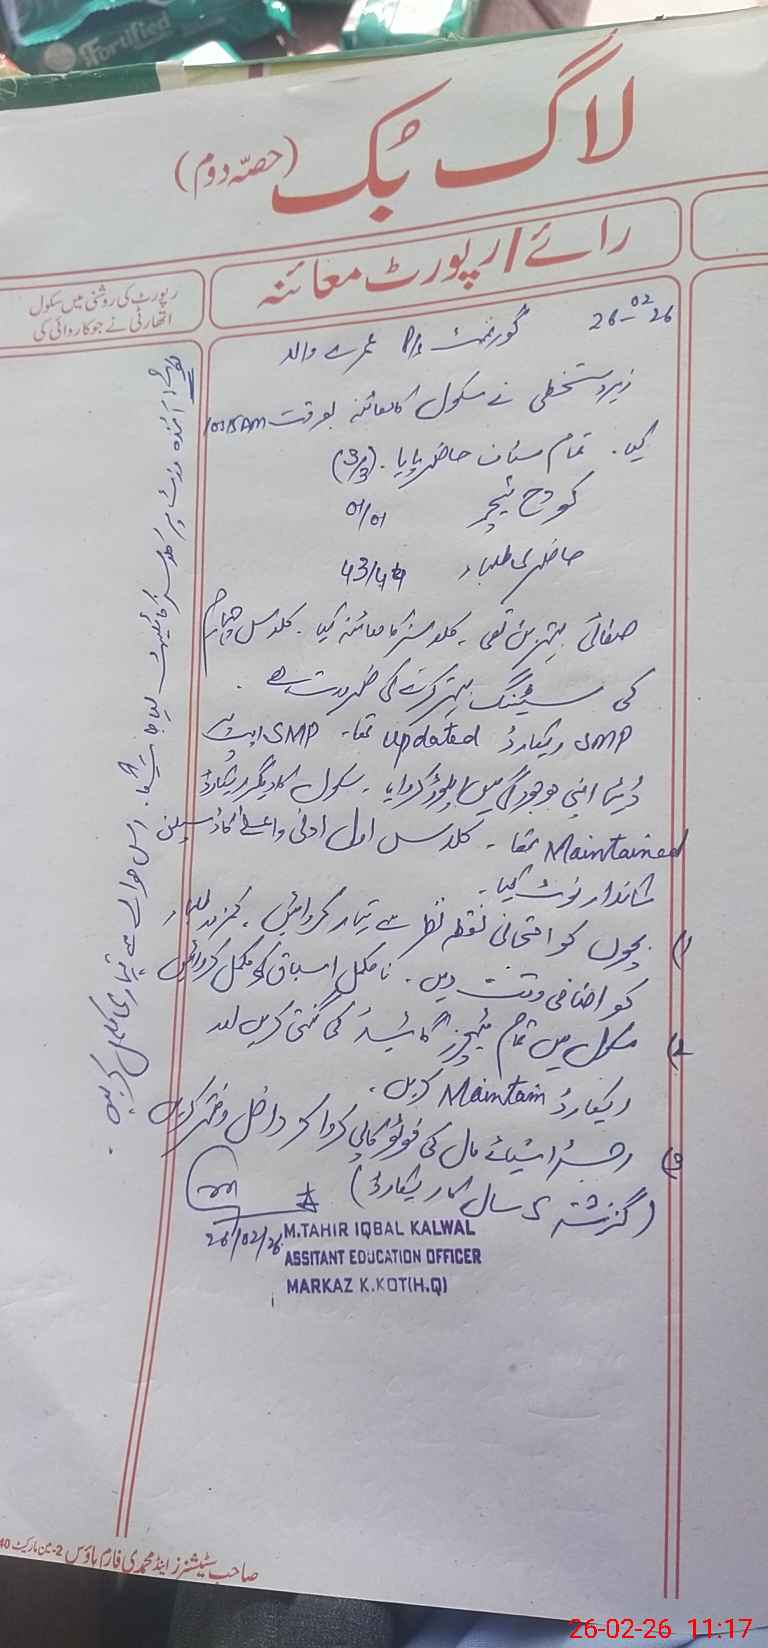 Fortified
لاگ بُک (حصّہ دوم)
رائے / رپورٹ معائنہ
رپورٹ کی روشنی میں سکول
اتھارٹی نے جو کاروائی کی
26-02-26
گورنمنٹ P/S عمرے والہ
زیر دستخطی نے سکول کا معائنہ بوقت 10:15AM
کیا۔ تمام سٹاف حاضر پایا۔ (3/3)
کوچ ٹیچر 01/01
حاضری طلباء 43/49
صفائی بہترین تھی۔ کلاسز کا معائنہ کیا۔ کلاس چہارم
کی سیٹنگ بہتر کرنے کی ضرورت ہے۔
SMP ریکارڈ updated تھا۔ SMP ایپ پر
ڈیٹا اپنی موجودگی میں اپلوڈ کروایا۔ سکول کا دیگر ریکارڈ
Maintained تھا۔ کلاس اول ادنیٰ واعلیٰ کا ڈسپلن
شاندار نوٹ کیا۔
1) بچوں کو امتحانی نقطہ نظر سے تیار کروائیں، کمزور طلباء
کو اضافی وقت دیں۔ نامکمل اسباق کو مکمل کروائیں
2) سکول میں تمام ٹیچرز گائیڈ کی گنتی کریں اور
ریکارڈ Maintain کریں۔
3) رجسٹر اشیائے مال کی فوٹو کاپی کروا کر داخل دفتر کریں
(گزشتہ 5 سال کا ریکارڈ)
26/02/26
M.TAHIR IQBAL KALWAL
ASSITANT EDUCATION OFFICER
MARKAZ K.KOT(H.Q)
نوٹ: آئندہ وزٹ پر کلاسز کا ٹیسٹ لیا جائیگا۔ اس حوالے سے تیاری مکمل کریں۔
صاحب سٹیشنرز اینڈ محمدی فارم ہاؤس 2-مین مارکیٹ
26-02-26 11:17